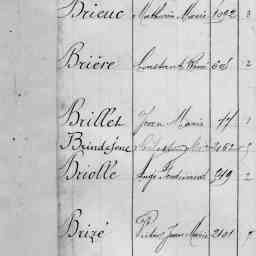 Brieuc Mathurin Marie 1092 3
Brière Constant René 2
Brillet Jean Marie 2
Brindejonc
Briolle Ange Ferdinand 219 2
Brizé Jean Marie 2101